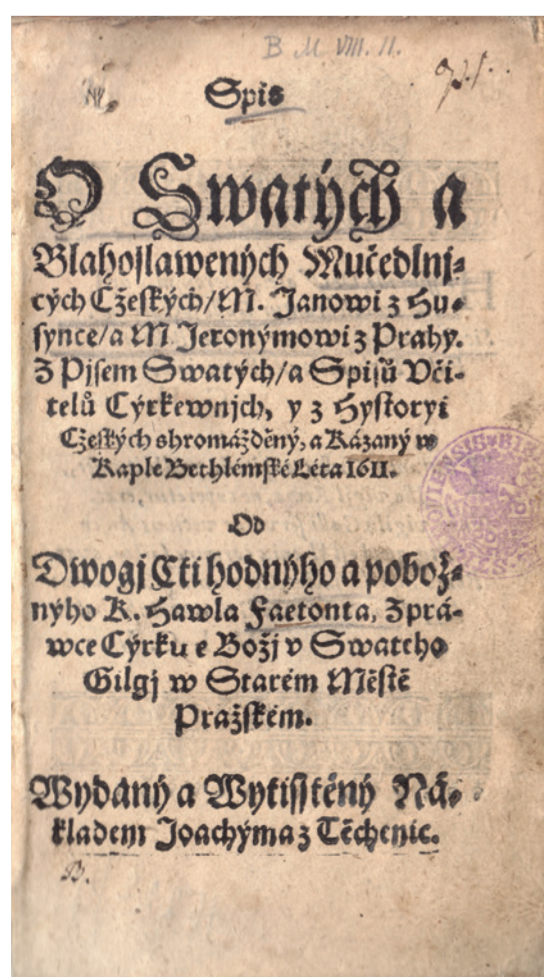 B M VIII. 11.
Spis
O Swatých a
Blahoslawených Mučedlnj-
cých Cžeských/M. Janowi z Hu-
synce/a M Jeronýmowi z Prahy.
Z Pjsem Swatých/a Spisů Včí-
telů Cýrkewnjch, y z Hystoryi
Cžeských shromážděný, a Kázaný w
Kaple Bethlémské Léta 1611.
Od
Dwogj Cti hodnýho a pobož-
nýho K. Hawla Faetonta, Zprá-
wce Cýrku e Božj v Swateho
Gilgj w Starém Městě
Pražském.
Wydaný a Wytisstěný Ná-
kladem Joachýma z Těchenic.
B.